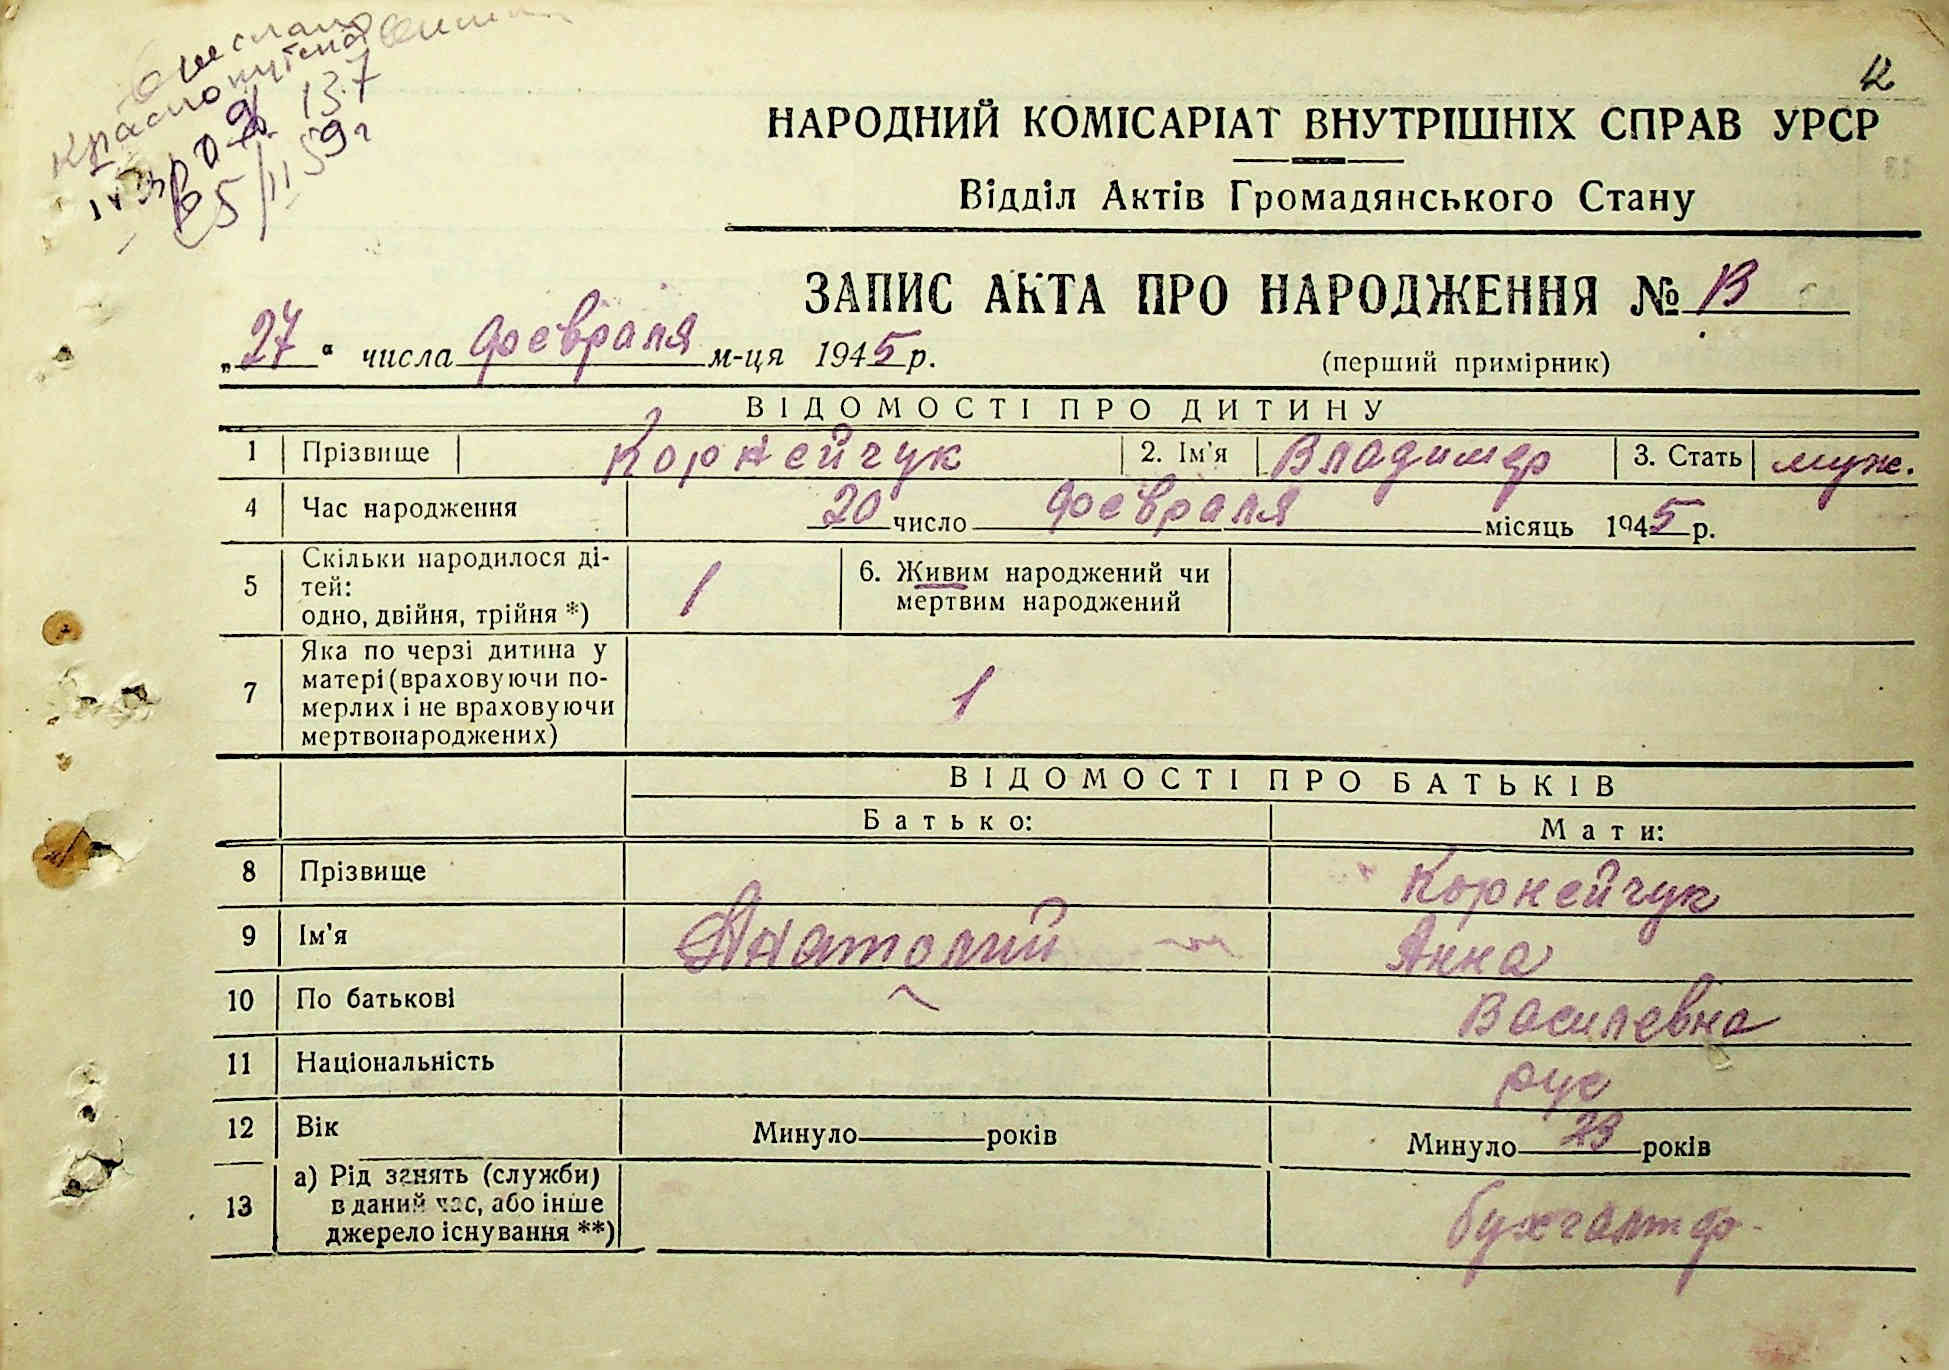 137
59 г
НАРОДНИЙ КОМІСАРІАТ ВНУТРІШНІХ СПРАВ УРСР
Відділ Актів Громадянського Стану
ЗАПИС АКТА ПРО НАРОДЖЕННЯ №
„27“ числа февраля м-ця 1945 р.
(перший примірник)
ВІДОМОСТІ ПРО ДИТИНУ
1 Прізвище Корнейчук 2. Ім'я Владимир 3. Стать муж.
4 Час народження 20 число февраля місяць 1945 р.
5 Скільки народилося ді-
тей:
одно, двійня, трійня *) 1
6. Живим народжений чи
мертвим народжений
7 Яка по черзі дитина у
матері (враховуючи по-
мерлих і не враховуючи
мертвонароджених) 1
ВІДОМОСТІ ПРО БАТЬКІВ
Батько: Мати:
8 Прізвище Корнейчук
9 Ім'я Анатолий Анна
10 По батькові Василевна
11 Національність рус
12 Вік Минуло років Минуло 23 років
13 а) Рід занять (служби)
в даний час, або інше
джерело існування **) бухгалтер